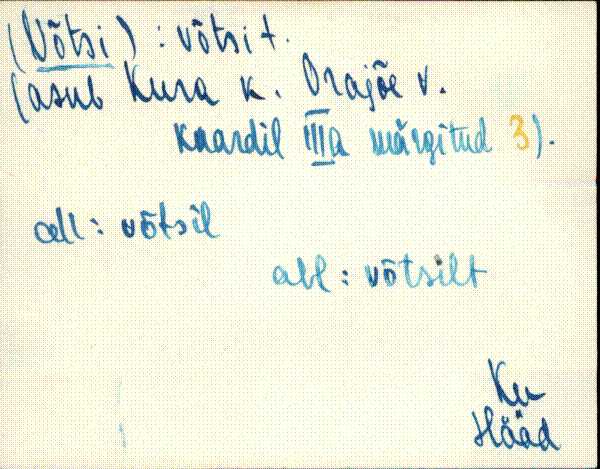 (Võtsi) : võtsit.
(asub Kura k. Orajõe v.
kaardil IIIa märgitud 3).
all : võtsil
abl : võtsilt
Ku
Hääd